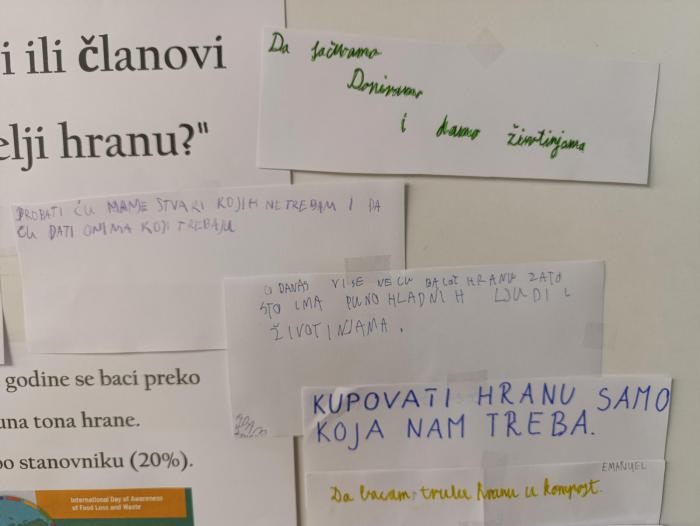 i ili članovi
elji hranu?"
Da sačuvamo
Doniramo
i damo životinjama
PROBATI ĆU MANJE STVARI KOJIH NE TREBAM I DA
ĆU DATI ONIMA KOJI TREBAJU
O DANAS VIŠE NEĆU BACAT HRANU ZATO
ŠTO IMA PUNO HLADNIH LJUDI I
ŽIVOTINJAMA.
godine se baci preko
una tona hrane.
po stanovniku (20%).
International Day of Awareness
of Food Loss and Waste
KUPOVATI HRANU SAMO
KOJA NAM TREBA.
EMANUEL
Da bacam trulu hranu u kompost.